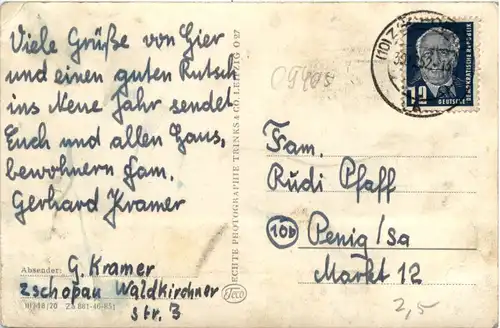 Viele Grüße von hier
und einen guten Rutsch
ins Neue Jahr sendet
Euch und allen Haus,
bewohnern Fam.
Gerhard Kramer
Absender: G. Kramer
Zschopau Waldkirchner
str. 3
ECHTE PHOTOGRAPHIE TRINKS & CO. LEIPZIG O 27
Teco
09405
12
DEUTSCHE
DEMOKRATISCHE REPUBLIK
Fam.
Rudi Pfaff
10b Penig/Sa
Markt 12
2,5